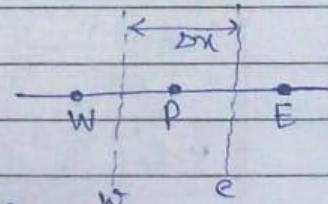 Δx
W P E
w e